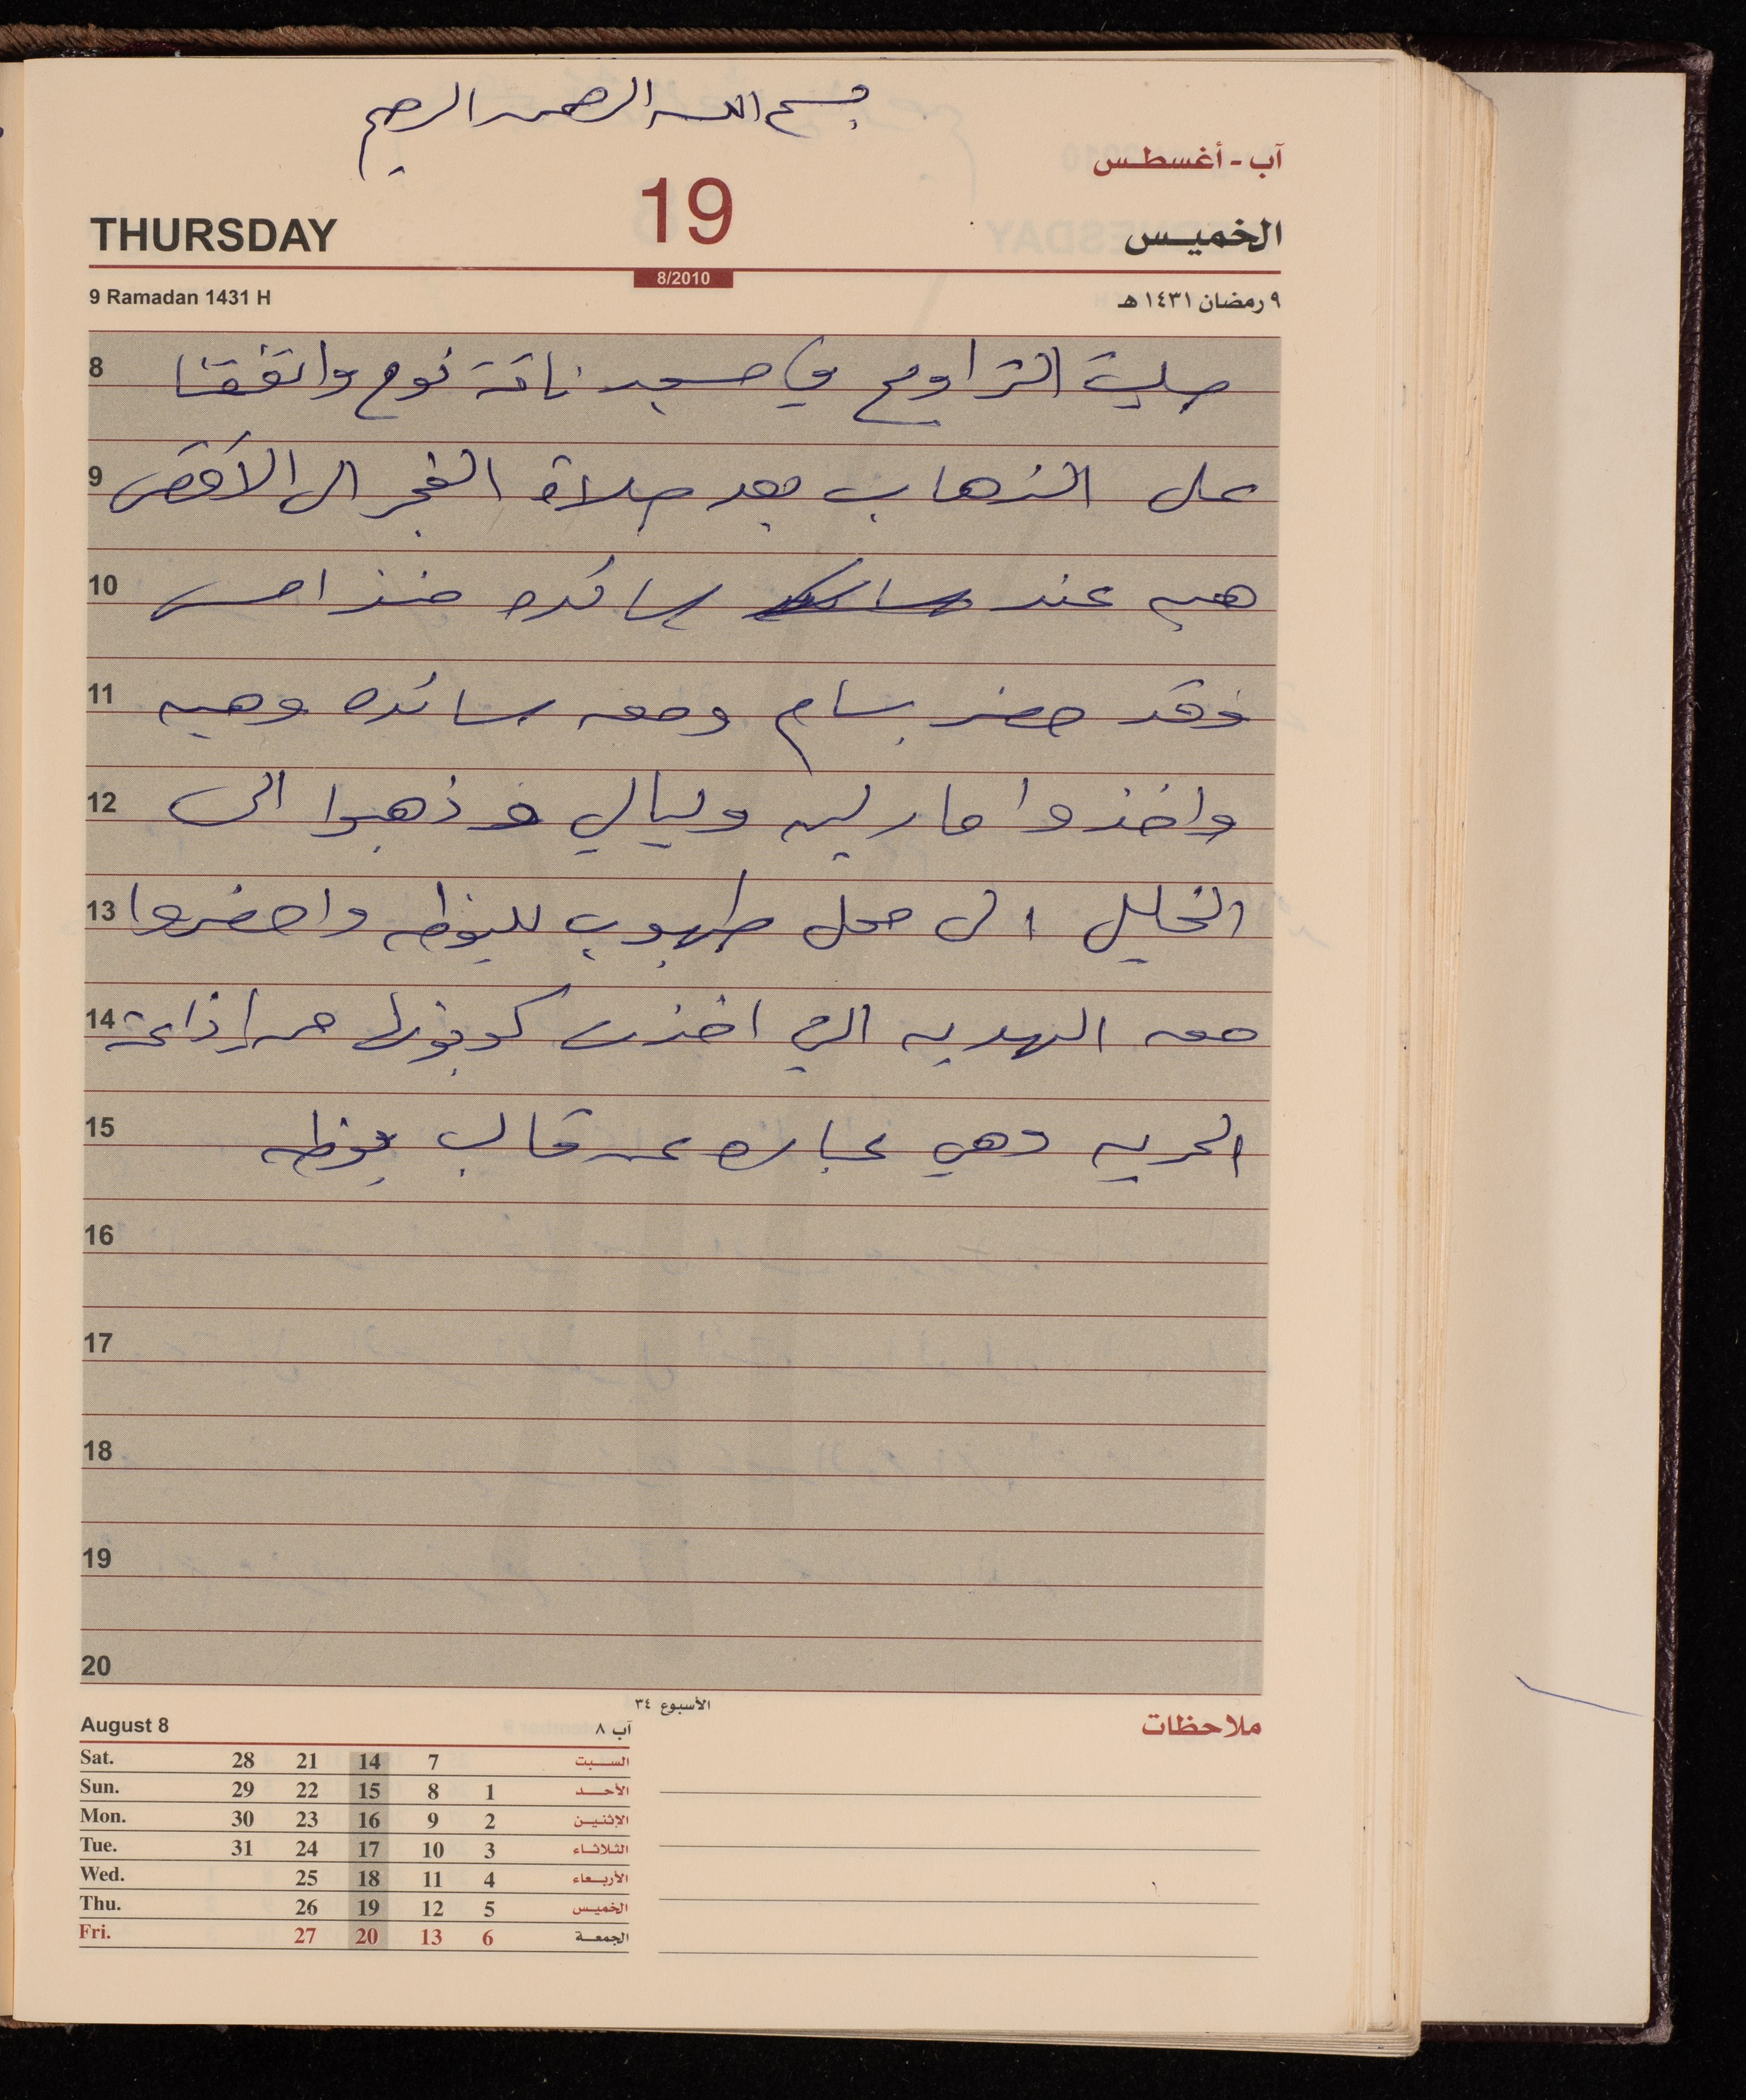 بسم الله الرحمن الرحيم
آب - أغسطس
THURSDAY 19 الخميس
8/2010
9 Ramadan 1431 H ٩ رمضان ١٤٣١ هـ
8 صليت التراويح في مسجد ناقة نوح واتفقنا
9 على الذهاب بعد صلاة الفجر الى الأقصى
10 هبه عند سائده منذ امس
11 فقد حضر بسام ومعه سائده وهبه
12 واخذوا مارلين وليالي وذهبوا الى
13 الخليل الى محل طهبوب للبوظه واحضروا
14 معه الهديه التي اخذت كوبونها من إذاعة
15 الحريه وهي عباره عن قالب بوظه
16
17
18
19
20
الأسبوع ٣٤
ملاحظات
August 8 آب ٨
Sat. 28 21 14 7 السبت
Sun. 29 22 15 8 1 الأحد
Mon. 30 23 16 9 2 الإثنين
Tue. 31 24 17 10 3 الثلاثاء
Wed. 25 18 11 4 الأربعاء
Thu. 26 19 12 5 الخميس
Fri. 27 20 13 6 الجمعة